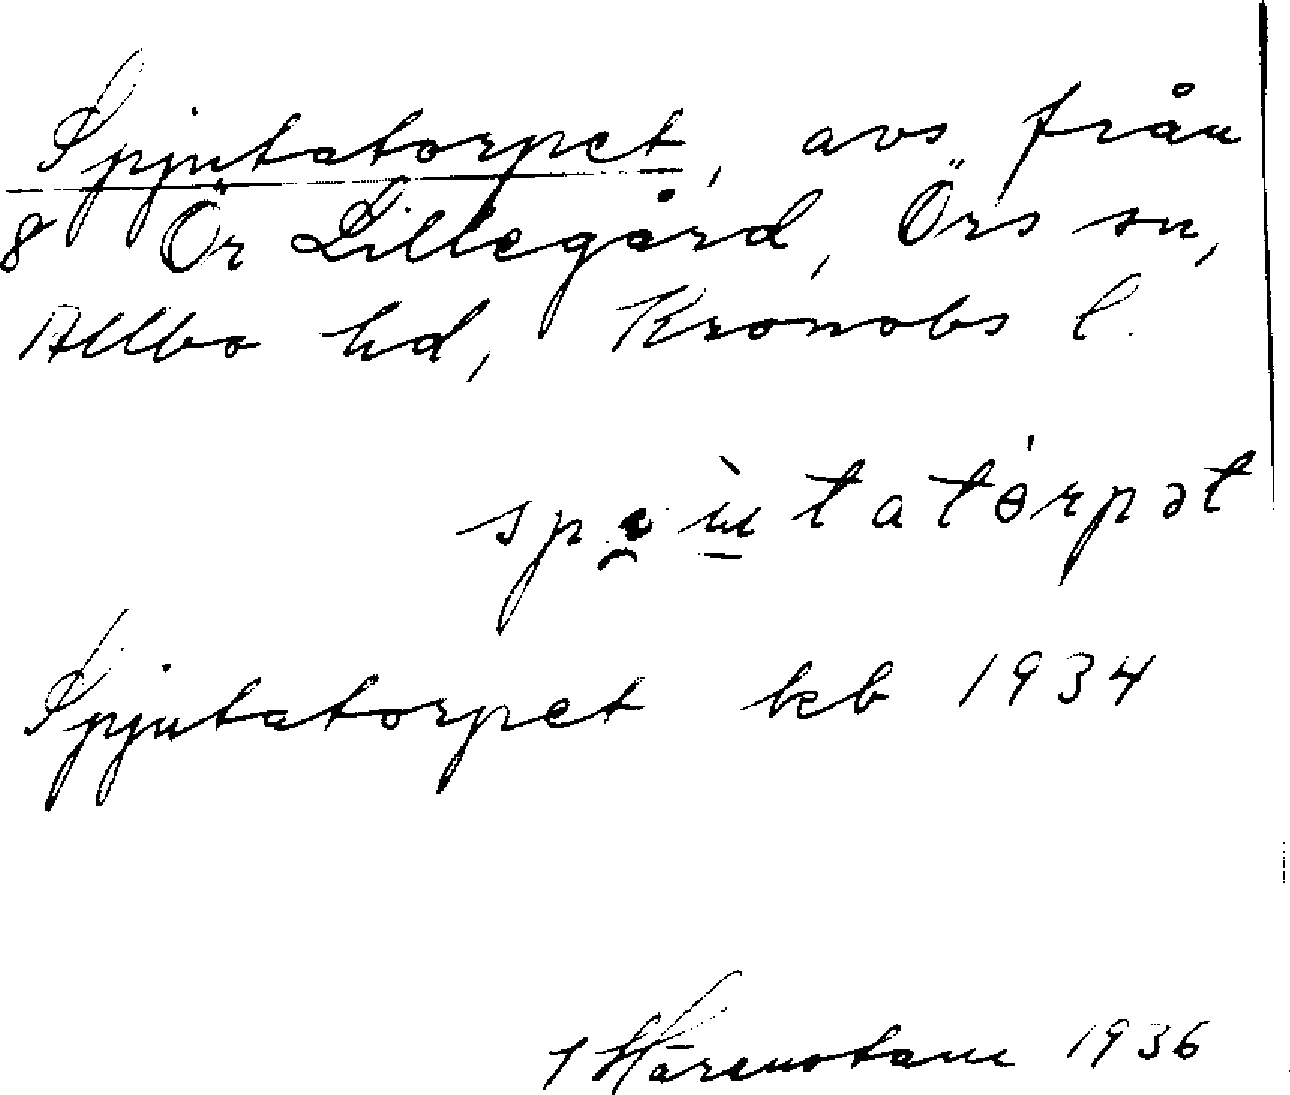 Spjutatorpet, avs. från
8 Ör Lillegård, Örs sn,
Allbo hd, Kronobs l.
Spjutatorpet kb 1934
1936